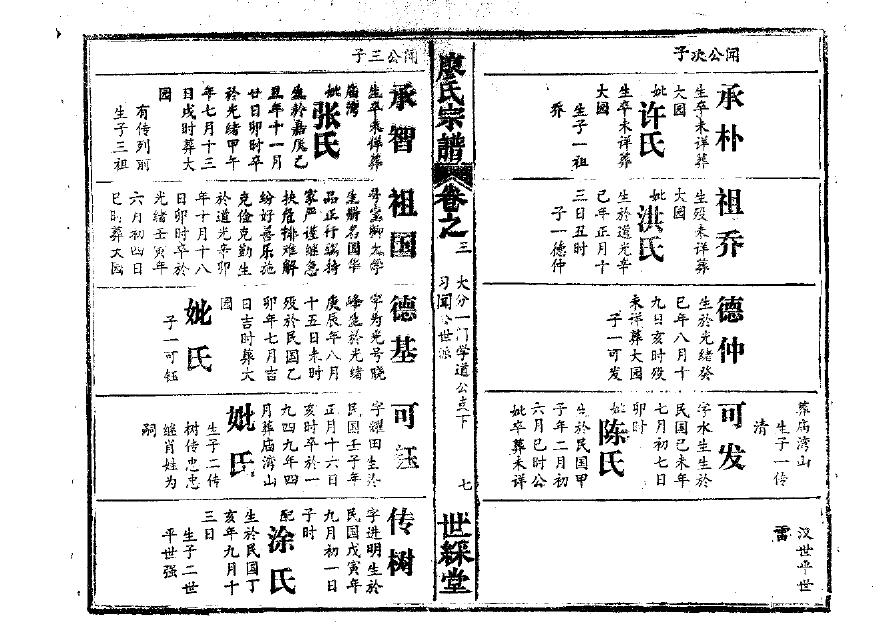 闻公次子
承朴
生卒未详葬
大园
妣
许氏
生卒未详葬
大园
生子一祖
乔
祖乔
生殁未详葬
大园
妣
洪氏
生於道光辛
巳年正月十
三日丑时
子一德仲
德仲
生於光绪癸
巳年八月十
九日亥时殁
未详葬大园
子一可发
可发
字水生生於
民国己未年
七月初七日
卯时
妣
陈氏
生於民国甲
子年二月初
六月巳时公
妣卒葬未详
葬庙湾山
生子一传
清
汉世平世
雷
廖氏宗谱
卷之三
大分一门学道公立下
习闻公世派
七
世綵堂
闻公三子
承智
生卒未详葬
庙湾
妣
张氏
生於嘉庆乙
丑年十一月
廿日卯时卒
於光绪甲午
年七月十三
日戌时葬大
园
有传列前
生子三祖
祖国
生册名国华
品正行端持
家严谨继急
扶危排难解
纷好善乐施
克俭克勤生
於道光辛卯
年十月十八
日卯时卒於
光绪壬寅年
六月初四日
巳时葬大园
德基
字为光号晓
峰生於光绪
庚辰年八月
十五日未时
殁於民国乙
卯年七月吉
日吉时葬大
园
妣氏
子一可钰
可钰
字耀田生於
民国壬子年
正月十六日
亥时卒於一
九四九年四
月葬庙湾山
妣氏
生子二传
树传忠忠
继肖姓为
嗣
传树
字进明生於
民国戊寅年
九月初一日
子时
配
涂氏
生於民国丁
亥年九月十
三日
生子二世
平世强